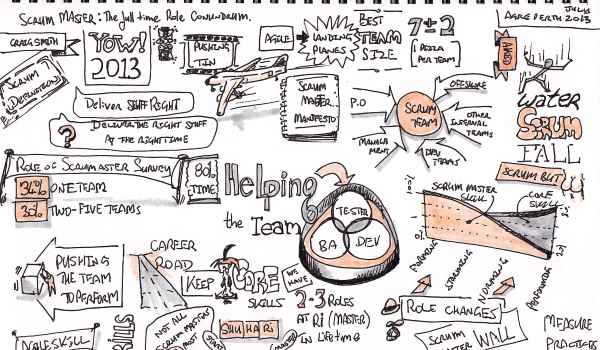 SCRUM MASTER: The full time Role Conundrum.
JULY
AGILE PERTH 2013
CRAIG SMITH
YOW!
2013
PUSHING
TIN
AGILE
LANDING
PLANES
BEST
TEAM
SIZE
7±2
1 PIZZA
PER TEAM
SCRUM
DEFINITION
Deliver STUFF RIGHT
? DELIVER THE RIGHT STUFF
AT THE RIGHT TIME
SCRUM
MASTER
MANIFESTO
P.O
SCRUM
TEAM
OFFSHORE
OTHER
INTERNAL
TEAMS
DEV
TEAMS
MANAGE
MENT
WATER
SCRUM
FALL
SCRUM BUT
ROLE OF SCRUMASTER SURVEY
80%
TIME
34% ONE TEAM
30% TWO-FIVE TEAMS
Helping
the Team
TESTER
BA
DEV
100%
0%
SCRUM MASTER
SKILL
CORE
SKILL
FORMING
STORMING
NORMING
PERFORMING
PUSHING
THE TEAM
TO PERFORM
CAREER
ROAD
KEEP
CORE
SKILLS
WE
HAVE
2-3 ROLES
AT Ri (MASTER)
IN LIFETIME
SHU HA RI
START
MASTER
NOT ALL
SCRUM MASTERS
MOST
ROLE CHANGES
SCRUM
MASTER WALL
MEASURE
PRACTICES